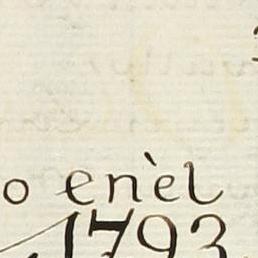 o enèl
1793